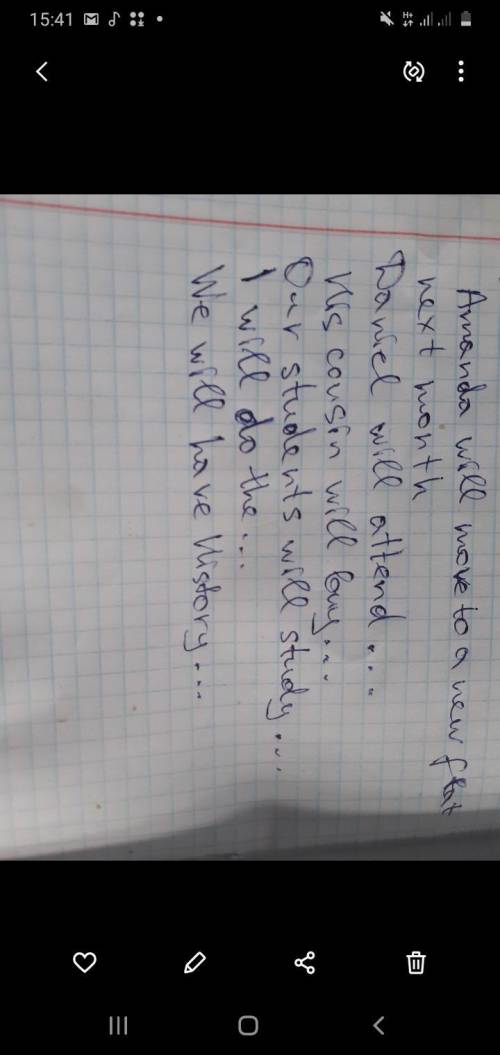 15:41
Amanda will move to a new flat
next month
Daniel will attend....
His cousin will buy....
Our students will study...
I will do the...
We will have History....